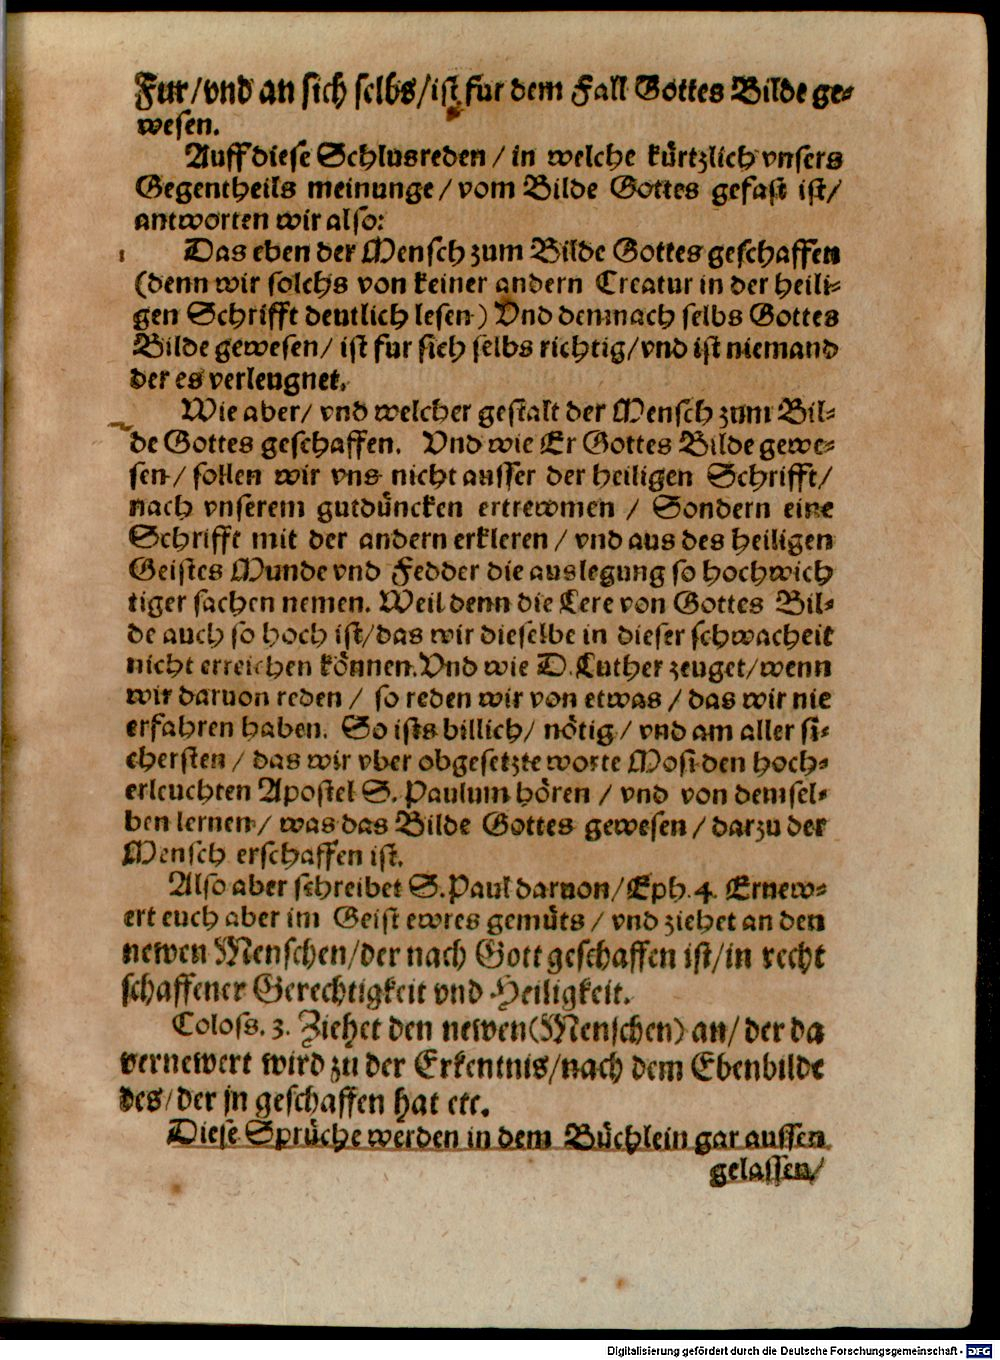 Fur/vnd an sich selbs/ist fur dem Fall Gottes Bilde ge-
wesen.
Auff diese Schlusreden/in welche kürtzlich vnsers
Gegentheils meinunge/vom Bilde Gottes gefast ist/
antworten wir also:
1 Das eben der Mensch zum Bilde Gottes geschaffen
(denn wir solchs von keiner andern Creatur in der heili-
gen Schrifft deutlich lesen) Vnd demnach selbs Gottes
Bilde gewesen/ist fur sich selbs richtig/vnd ist niemand
der es verleugnet.
Wie aber/vnd welcher gestalt der Mensch zum Bil-
de Gottes geschaffen. Vnd wie Er Gottes Bilde gewe-
sen/sollen wir vns nicht ausser der heiligen Schrifft/
nach vnserem gutdüncken ertrewmen/Sondern eine
Schrifft mit der andern erkleren/vnd aus des heiligen
Geistes Munde vnd Fedder die auslegung so hochwich
tiger sachen nemen. Weil denn die Lere von Gottes Bil-
de auch so hoch ist/das wir dieselbe in dieser schwacheit
nicht erreichen können. Vnd wie D. Luther zeuget/wenn
wir daruon reden/so reden wir von etwas/das wir nie
erfahren haben. So ists billich/nötig/vnd am aller si-
chersten/das wir vber obgesetzte worte Mosi den hoch-
erleuchten Apostel S. Paulum hören/vnd von demsel-
ben lernen/was das Bilde Gottes gewesen/darzu der
Mensch erschaffen ist.
Also aber schreibet S. Paul daruon/Eph. 4. Ernew-
ert euch aber im Geist ewres gemüts/vnd ziehet an den
newen Menschen/der nach Gott geschaffen ist/in recht
schaffener Gerechtigkeit vnd Heiligkeit.
Coloss. 3. Ziehet den newen (Menschen) an/der da
vernewert wird zu der Erkentnis/nach dem Ebenbilde
des/der jn geschaffen hat etc.
Diese Sprüche werden in dem Büchlein gar aussen
gelassen/
Digitalisierung gefördert durch die Deutsche Forschungsgemeinschaft - DFG